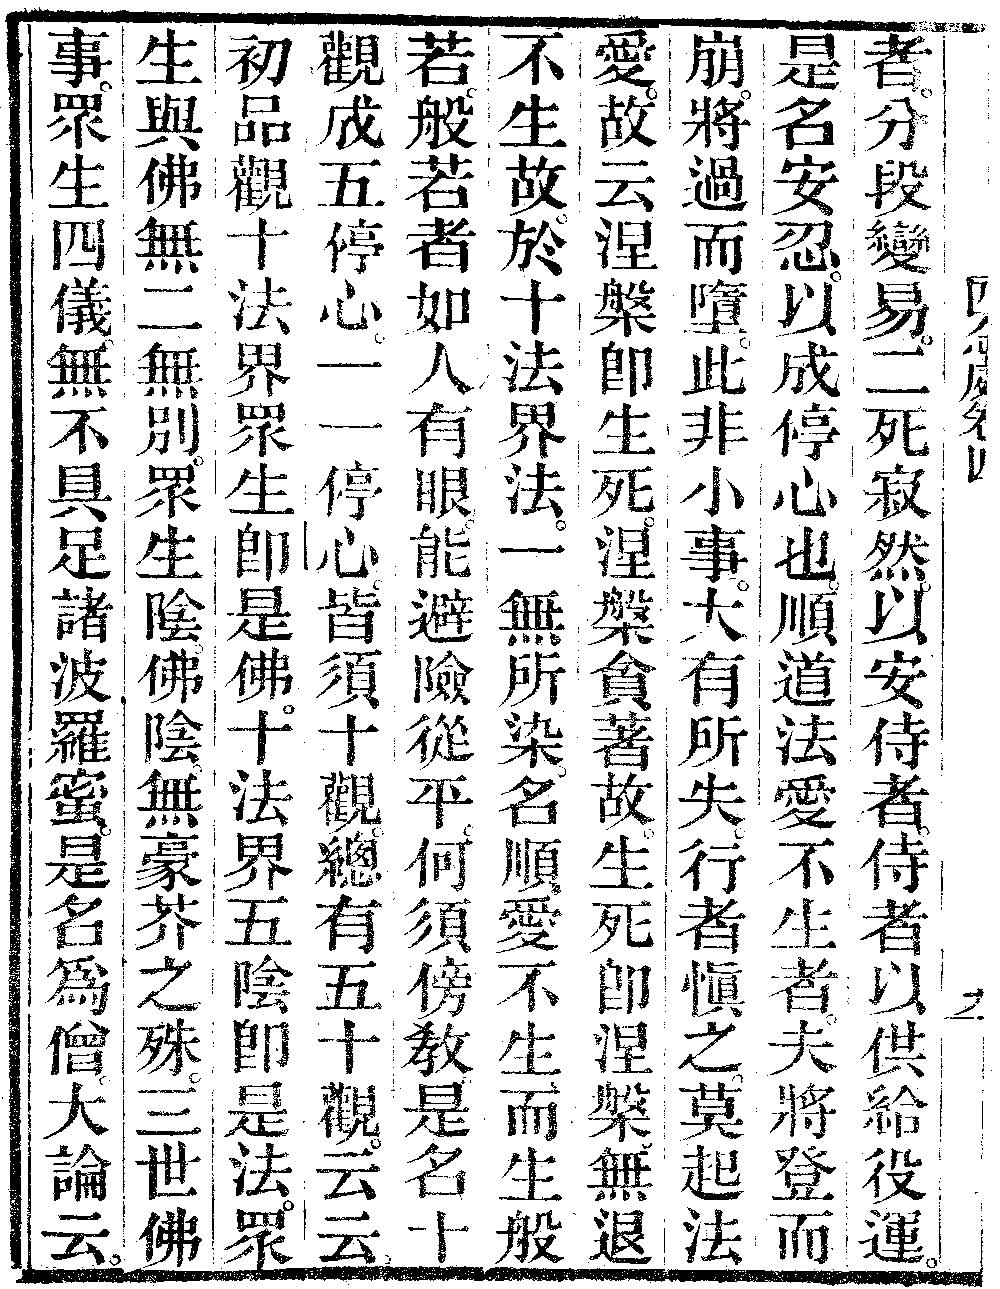 者。分段變易。二死寂然。以安侍者。侍者以供給役運。
是名安忍。以成停心也。順道法愛不生者。夫將登而
崩。將過而墮。此非小事。大有所失。行者慎之。莫起法
愛。故云涅槃卽生死。涅槃貪著故。生死卽涅槃。無退
不生故。於十法界法。一無所染。名順愛不生而生般
若。般若者如人有眼。能避險從平。何須傍教。是名十
觀成五停心。一一停心。皆須十觀。總有五十觀。云云。
初品觀十法界眾生卽是佛。十法界五陰卽是法。眾
生與佛無二無別。眾生陰佛陰。無豪芥之殊。三世佛
事。眾生四儀。無不具足諸波羅蜜。是名爲僧。大論云。